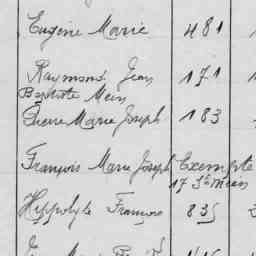 Eugène Marie 481
Raymond Jean 171
Baptiste
Pierre Marie Joseph 183
François Marie Joseph Exempté
17
Hippolyte François 835